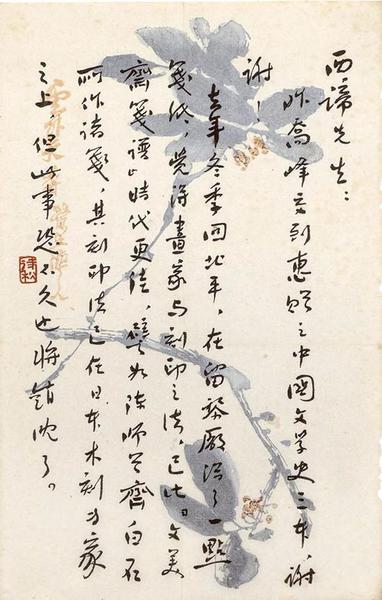 西諦先生：
昨喬峰交到惠贈之中國文学史三本，謝
謝！
去年冬季回北平，在留黎廠得了一點
箋紙，覺得畫家与刻印之法，已比文美
齋箋譜時代更佳，譬如陳師曾齊白石
所作諸箋，其刻印法已在日本木刻專家
之上，但此事恐不久也將銷沈了。